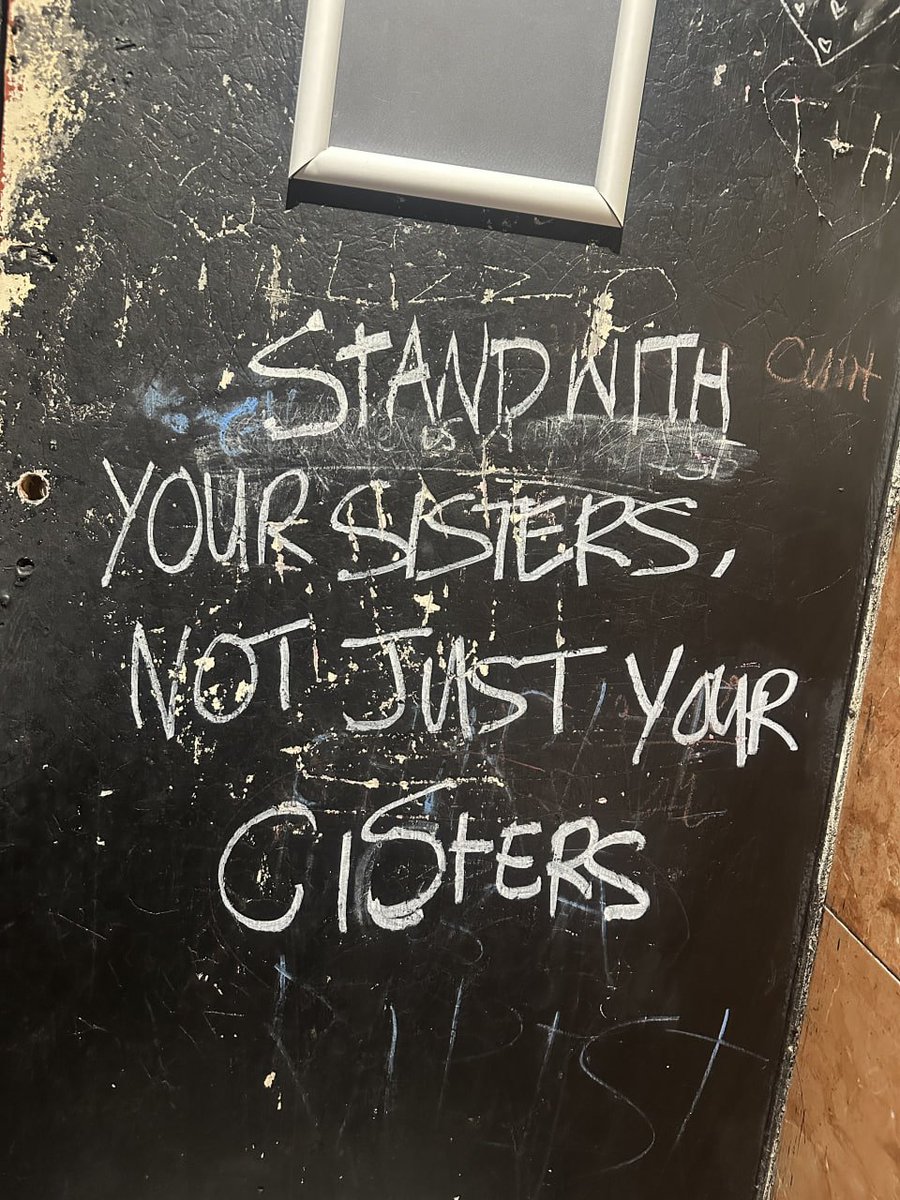 T H
LIZZO
STAND WITH
YOUR SISTERS,
NOT JUST YOUR
CISTERS